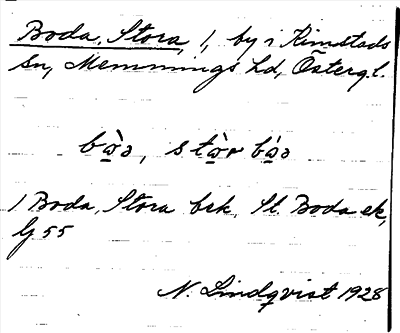 Boda, Stora, 1, by i Kimstads
sn, Memmings hd, Österg.l.
bò̲ə, stò̲r bò̲ə
1 Boda, Stora bek. St. Boda ek,
G 55
N. Lindqvist 1928